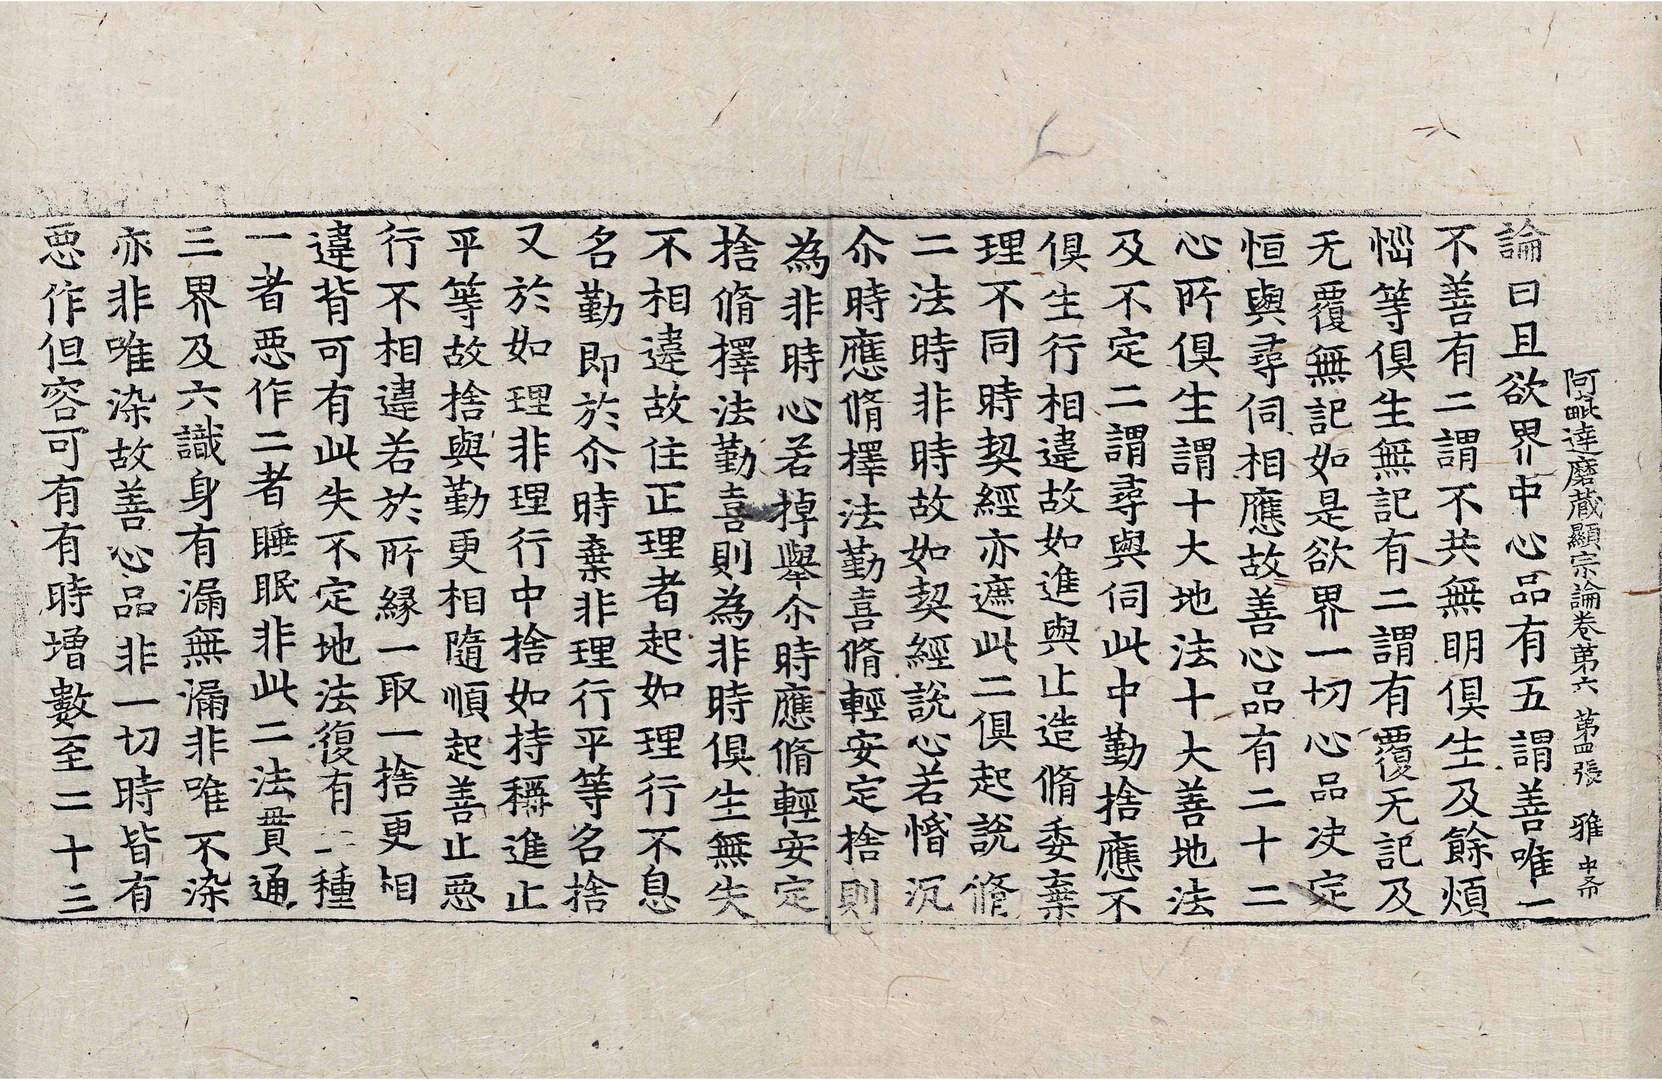 阿毗達磨藏顯宗論卷第六 第四張 雅
論曰且欲界中心品有五謂善唯一
不善有二謂不共無明俱生及餘煩
惱等俱生無記有二謂有覆无記及
无覆無記如是欲界一切心品決定
恒與尋伺相應故善心品有二十二
心所俱生謂十大地法十大善地法
及不定二謂尋與伺此中勤捨應不
俱生行相違故如進與止造脩委棄
理不同時契經亦遮此二俱起說脩
二法時非時故如契經說心若惛沉
尒時應脩擇法勤喜脩輕安定捨則
為非時心若掉舉尒時應脩輕安定
捨脩擇法勤喜則為非時俱生無失
不相違故住正理者起如理行不息
名勤即於尒時棄非理行平等名捨
又於如理非理行中捨如持稱進止
平等故捨與勤更相隨順起善止惡
行不相違若於所緣一取一捨更相
違背可有此失不定地法復有二種
一者惡作二者睡眠非此二法貫通
三界及六識身有漏無漏非唯不染
亦非唯染故善心品非一切時皆有
惡作但容可有有時增數至二十三